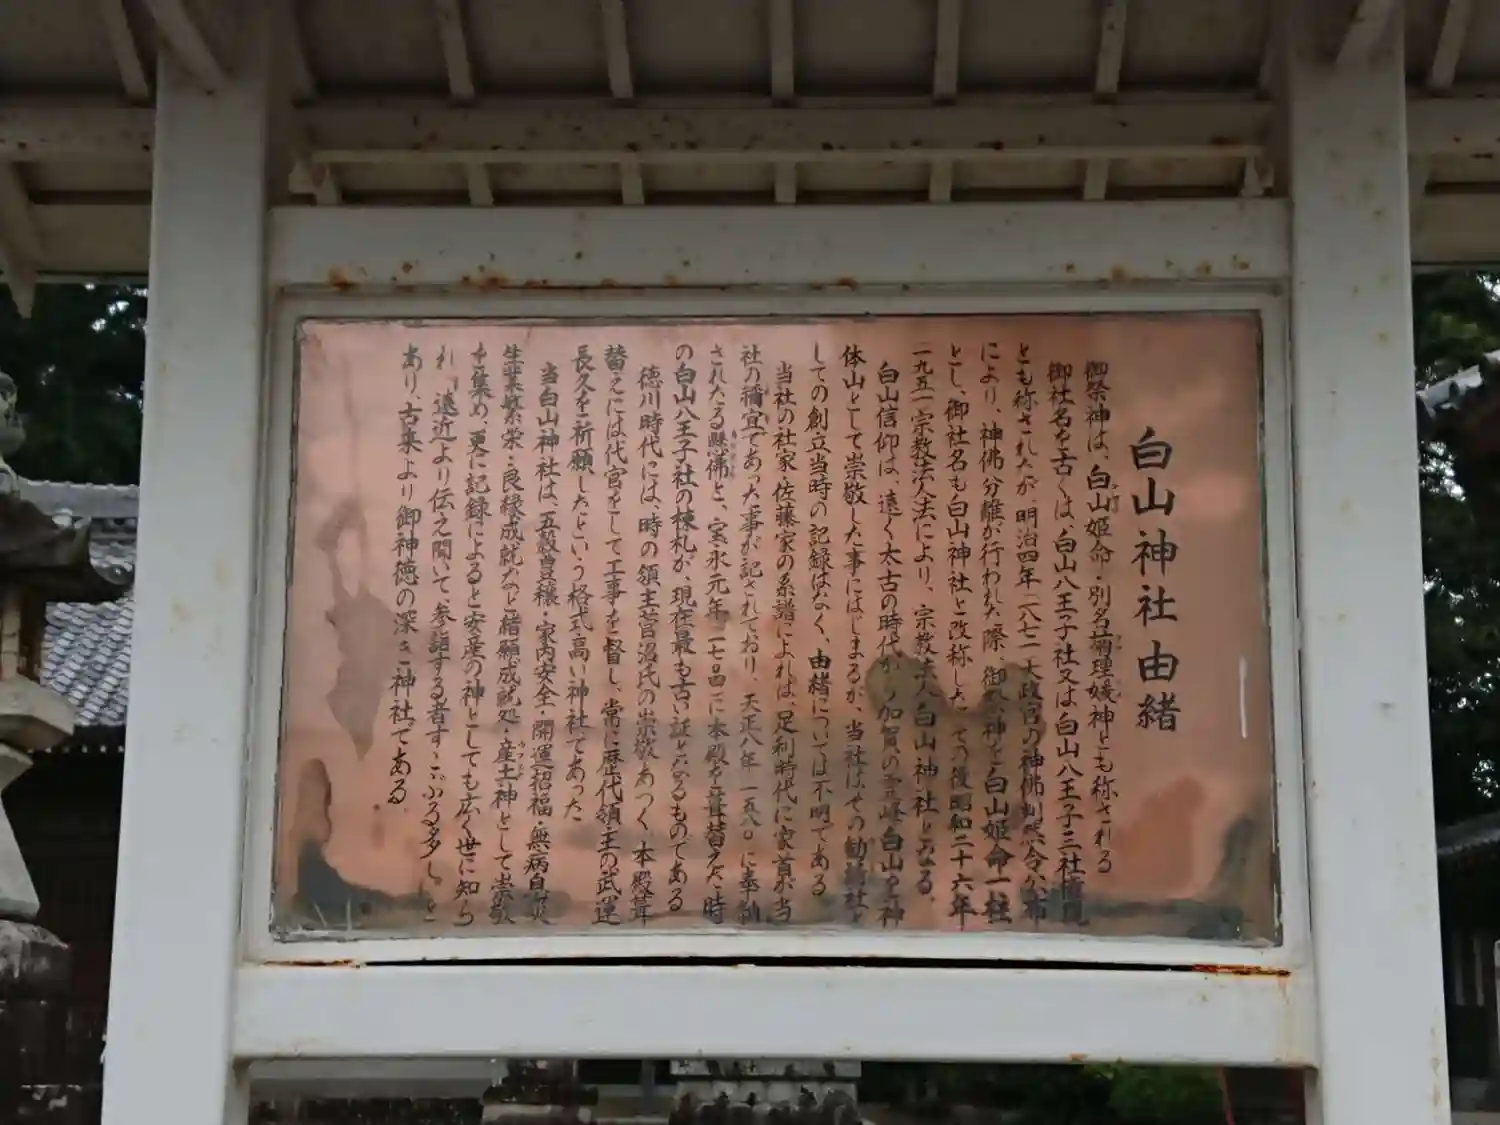 白山神社由緒
御祭神は、白山姫命・別名菊理媛神とも称される
御社名を古くは、白山八王子社又は白山八王子三社権現
とも称されたが、明治四年一八七一太政官の神佛判然令が布
により、神佛分離が行われた際、御祭神を白山姫命一柱
とし、御社名も白山神社と改称した その後昭和二十六年
一九五一宗教法人法により、宗教法人白山神社となる。
白山信仰は、遠く太古の時代から加賀の霊峰白山を神
体山として崇敬した事にはじまるが、当社はその勧請社と
しての創立当時の記録はなく、由緒については不明である
当社の社家・佐藤家の系譜によれば、足利時代に家首が当
社の禰宜であった事が記されており、天正八年一五八〇に奉納
されたる懸佛と、宝永元年一七〇四に本殿を葺替えた時
の白山八王子社の棟札が、現在最も古い証となるものである
徳川時代には、時の領主菅沼氏の崇敬あつく、本殿葺
替えには代官をして工事を督し、常に歴代領主の武運
長久を祈願したという格式高い神社であった
当白山神社は、五穀豊穣・家内安全・開運招福・無病息災
生業繁栄・良縁成就など諸願成就処・産土神として崇敬
を集め、更に記録によると安産の神としても広く世に知ら
れ「遠近より伝え聞いて、参詣する者すこぶる多し。」と
あり、古来より御神徳の深き神社である